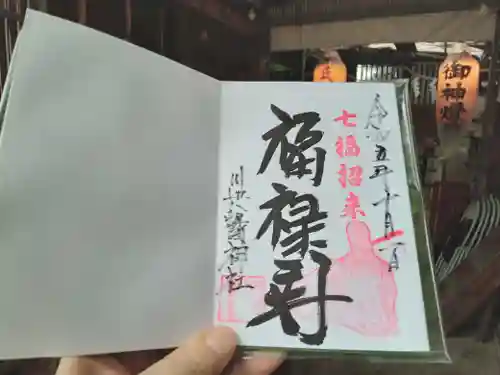 令和五年十月一日
七福招来
福禄寿
川越八幡神社
御神燈